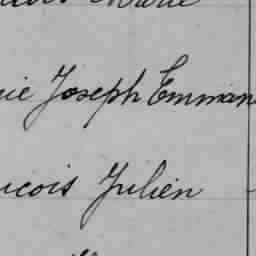 Marie
ie Joseph Emman
cois Julien